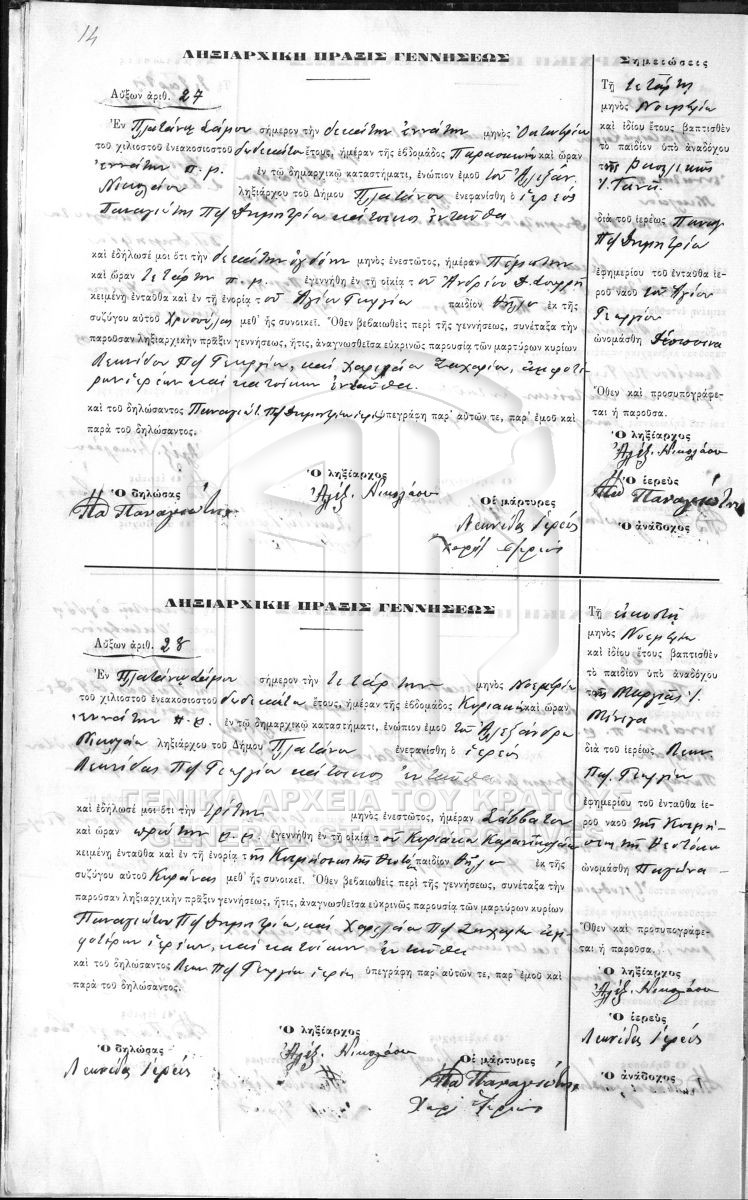 14
ΛΗΞΙΑΡΧΙΚΗ ΠΡΑΞΙΣ ΓΕΝΝΗΣΕΩΣ
Αὔξων ἀριθ. 27
Ἐν Πλατάνῳ Σάμου σήμερον τὴν δεκάτην ἐννάτην μηνὸς Ὀκτωβρίου
τοῦ χιλιοστοῦ ἐνεακοσιοστοῦ δωδεκάτου ἔτους, ἡμέραν τῆς ἑβδομάδος Παρασκευὴν καὶ ὥραν
ἐννάτην π. μ. ἐν τῷ δημαρχικῷ καταστήματι, ἐνώπιον ἐμοῦ τοῦ Ἀλεξάν.
Νικολάου ληξιάρχου τοῦ Δήμου Πλατάνου ἐνεφανίσθη ὁ ἱερεὺς
Παναγιώτης Πδημητρίου κάτοικος ἐνταῦθα
καὶ ἐδήλωσέ μοι ὅτι τὴν δεκάτην ὀγδόην μηνὸς ἐνεστῶτος, ἡμέραν Πέμπτην
καὶ ὥραν τετάρτην π. μ. ἐγεννήθη ἐν τῇ οἰκίᾳ τοῦ Ἀνδρέου
κειμένῃ ἐνταῦθα καὶ ἐν τῇ ἐνορίᾳ τοῦ Ἁγίου Γεωργίου παιδίον θῆλυ ἐκ τῆς
συζύγου αὐτοῦ Χρυσούλας μεθ' ἧς συνοικεῖ. Ὅθεν βεβαιωθεὶς περὶ τῆς γεννήσεως, συνέταξα τὴν
παροῦσαν ληξιαρχικὴν πρᾶξιν γεννήσεως, ἥτις, ἀναγνωσθεῖσα εὐκρινῶς παρουσίᾳ τῶν μαρτύρων κυρίων
Λεωνίδου Πγεωργίου, καὶ Χαριλάου Ζαχαρίου, ἀμφοτέ-
ρων ἱερέων καὶ κατοίκων ἐνταῦθα.
καὶ τοῦ δηλώσαντος Παναγιώτ. Πδημητρίου ἱερέως ὑπεγράφη παρ' αὐτῶν τε, παρ' ἐμοῦ καὶ
παρὰ τοῦ δηλώσαντος.
Ὁ δηλώσας
Πα Παναγιώτης
Ὁ ληξίαρχος
Ἀλέξ. Νικολάου
Οἱ μάρτυρες
Λεωνίδας ἱερεύς
Χαρίλ ἱερεύς
Σημειώσεις
Τῇ τετάρτῃ
μηνὸς Νοεμβρίου
καὶ ἰδίου ἔτους βαπτισθὲν
τὸ παιδίον ὑπὸ ἀναδόχου
τῆς
διὰ τοῦ ἱερέως Παναγ.
Πδημητρίου
ἐφημερίου τοῦ ἐνταῦθα ἱε-
ροῦ ναοῦ τοῦ Ἁγίου
Γεωργίου
ὠνομάσθη Δέσποινα
Ὅθεν καὶ προσυπογράφε-
ται ἡ παροῦσα.
Ὁ ληξίαρχος
Ἀλέξ. Νικολάου
Ὁ ἱερεὺς
Πα Παναγιώτης
Ὁ ἀνάδοχος
ΛΗΞΙΑΡΧΙΚΗ ΠΡΑΞΙΣ ΓΕΝΝΗΣΕΩΣ
Αὔξων ἀριθ. 28
Ἐν Πλατάνῳ Σάμου σήμερον τὴν τετάρτην μηνὸς Νοεμβρίου
τοῦ χιλιοστοῦ ἐνεακοσιοστοῦ δωδεκάτου ἔτους, ἡμέραν τῆς ἑβδομάδος Κυριακὴν καὶ ὥραν
ἐννάτην π. μ. ἐν τῷ δημαρχικῷ καταστήματι, ἐνώπιον ἐμοῦ τοῦ Ἀλεξάνδρου
Νικολάου ληξιάρχου τοῦ Δήμου Πλατάνου ἐνεφανίσθη ὁ ἱερεὺς
Λεωνίδας Πγεωργίου κάτοικος ἐνταῦθα
καὶ ἐδήλωσέ μοι ὅτι τὴν τρίτην μηνὸς ἐνεστῶτος, ἡμέραν Σάββατον
καὶ ὥραν πρώτην π. μ. ἐγεννήθη ἐν τῇ οἰκίᾳ τοῦ Κυριάκου
κειμένῃ ἐνταῦθα καὶ ἐν τῇ ἐνορίᾳ τῆς Κοιμήσεως τῆς Θεοτόκ. παιδίον θῆλυ ἐκ τῆς
συζύγου αὐτοῦ μεθ' ἧς συνοικεῖ. Ὅθεν βεβαιωθεὶς περὶ τῆς γεννήσεως, συνέταξα τὴν
παροῦσαν ληξιαρχικὴν πρᾶξιν γεννήσεως, ἥτις, ἀναγνωσθεῖσα εὐκρινῶς παρουσίᾳ τῶν μαρτύρων κυρίων
Παναγιώτου Πδημητρίου, καὶ Χαριλάου Πζαχαρίου ἀμ-
φοτέρων ἱερέων, καὶ κατοίκων ἐνταῦθα
καὶ τοῦ δηλώσαντος Λεων. Πγεωργίου ἱερέως ὑπεγράφη παρ' αὐτῶν τε, παρ' ἐμοῦ καὶ
παρὰ τοῦ δηλώσαντος.
Ὁ δηλώσας
Λεωνίδας ἱερεύς
Ὁ ληξίαρχος
Ἀλέξ. Νικολάου
Οἱ μάρτυρες
Πα Παναγιώτης
Χαρίλ ἱερεύς
Τῇ εἰκοστῇ
μηνὸς Νοεμβρίου
καὶ ἰδίου ἔτους βαπτισθὲν
τὸ παιδίον ὑπὸ ἀναδόχου
τῆς
διὰ τοῦ ἱερέως Λεων.
Πα. Γεωργίου
ἐφημερίου τοῦ ἐνταῦθα ἱε-
ροῦ ναοῦ τῆς Κοιμή-
σεως τῆς Θεοτόκου
ὠνομάσθη
Ὅθεν καὶ προσυπογράφε-
ται ἡ παροῦσα.
Ὁ ληξίαρχος
Ἀλέξ. Νικολάου
Ὁ ἱερεὺς
Λεωνίδας ἱερεύς
Ὁ ἀνάδοχος
ΓΕΝΙΚΑ ΑΡΧΕΙΑ ΤΟΥ ΚΡΑΤΟΥΣ
GENERAL STATE ARCHIVES